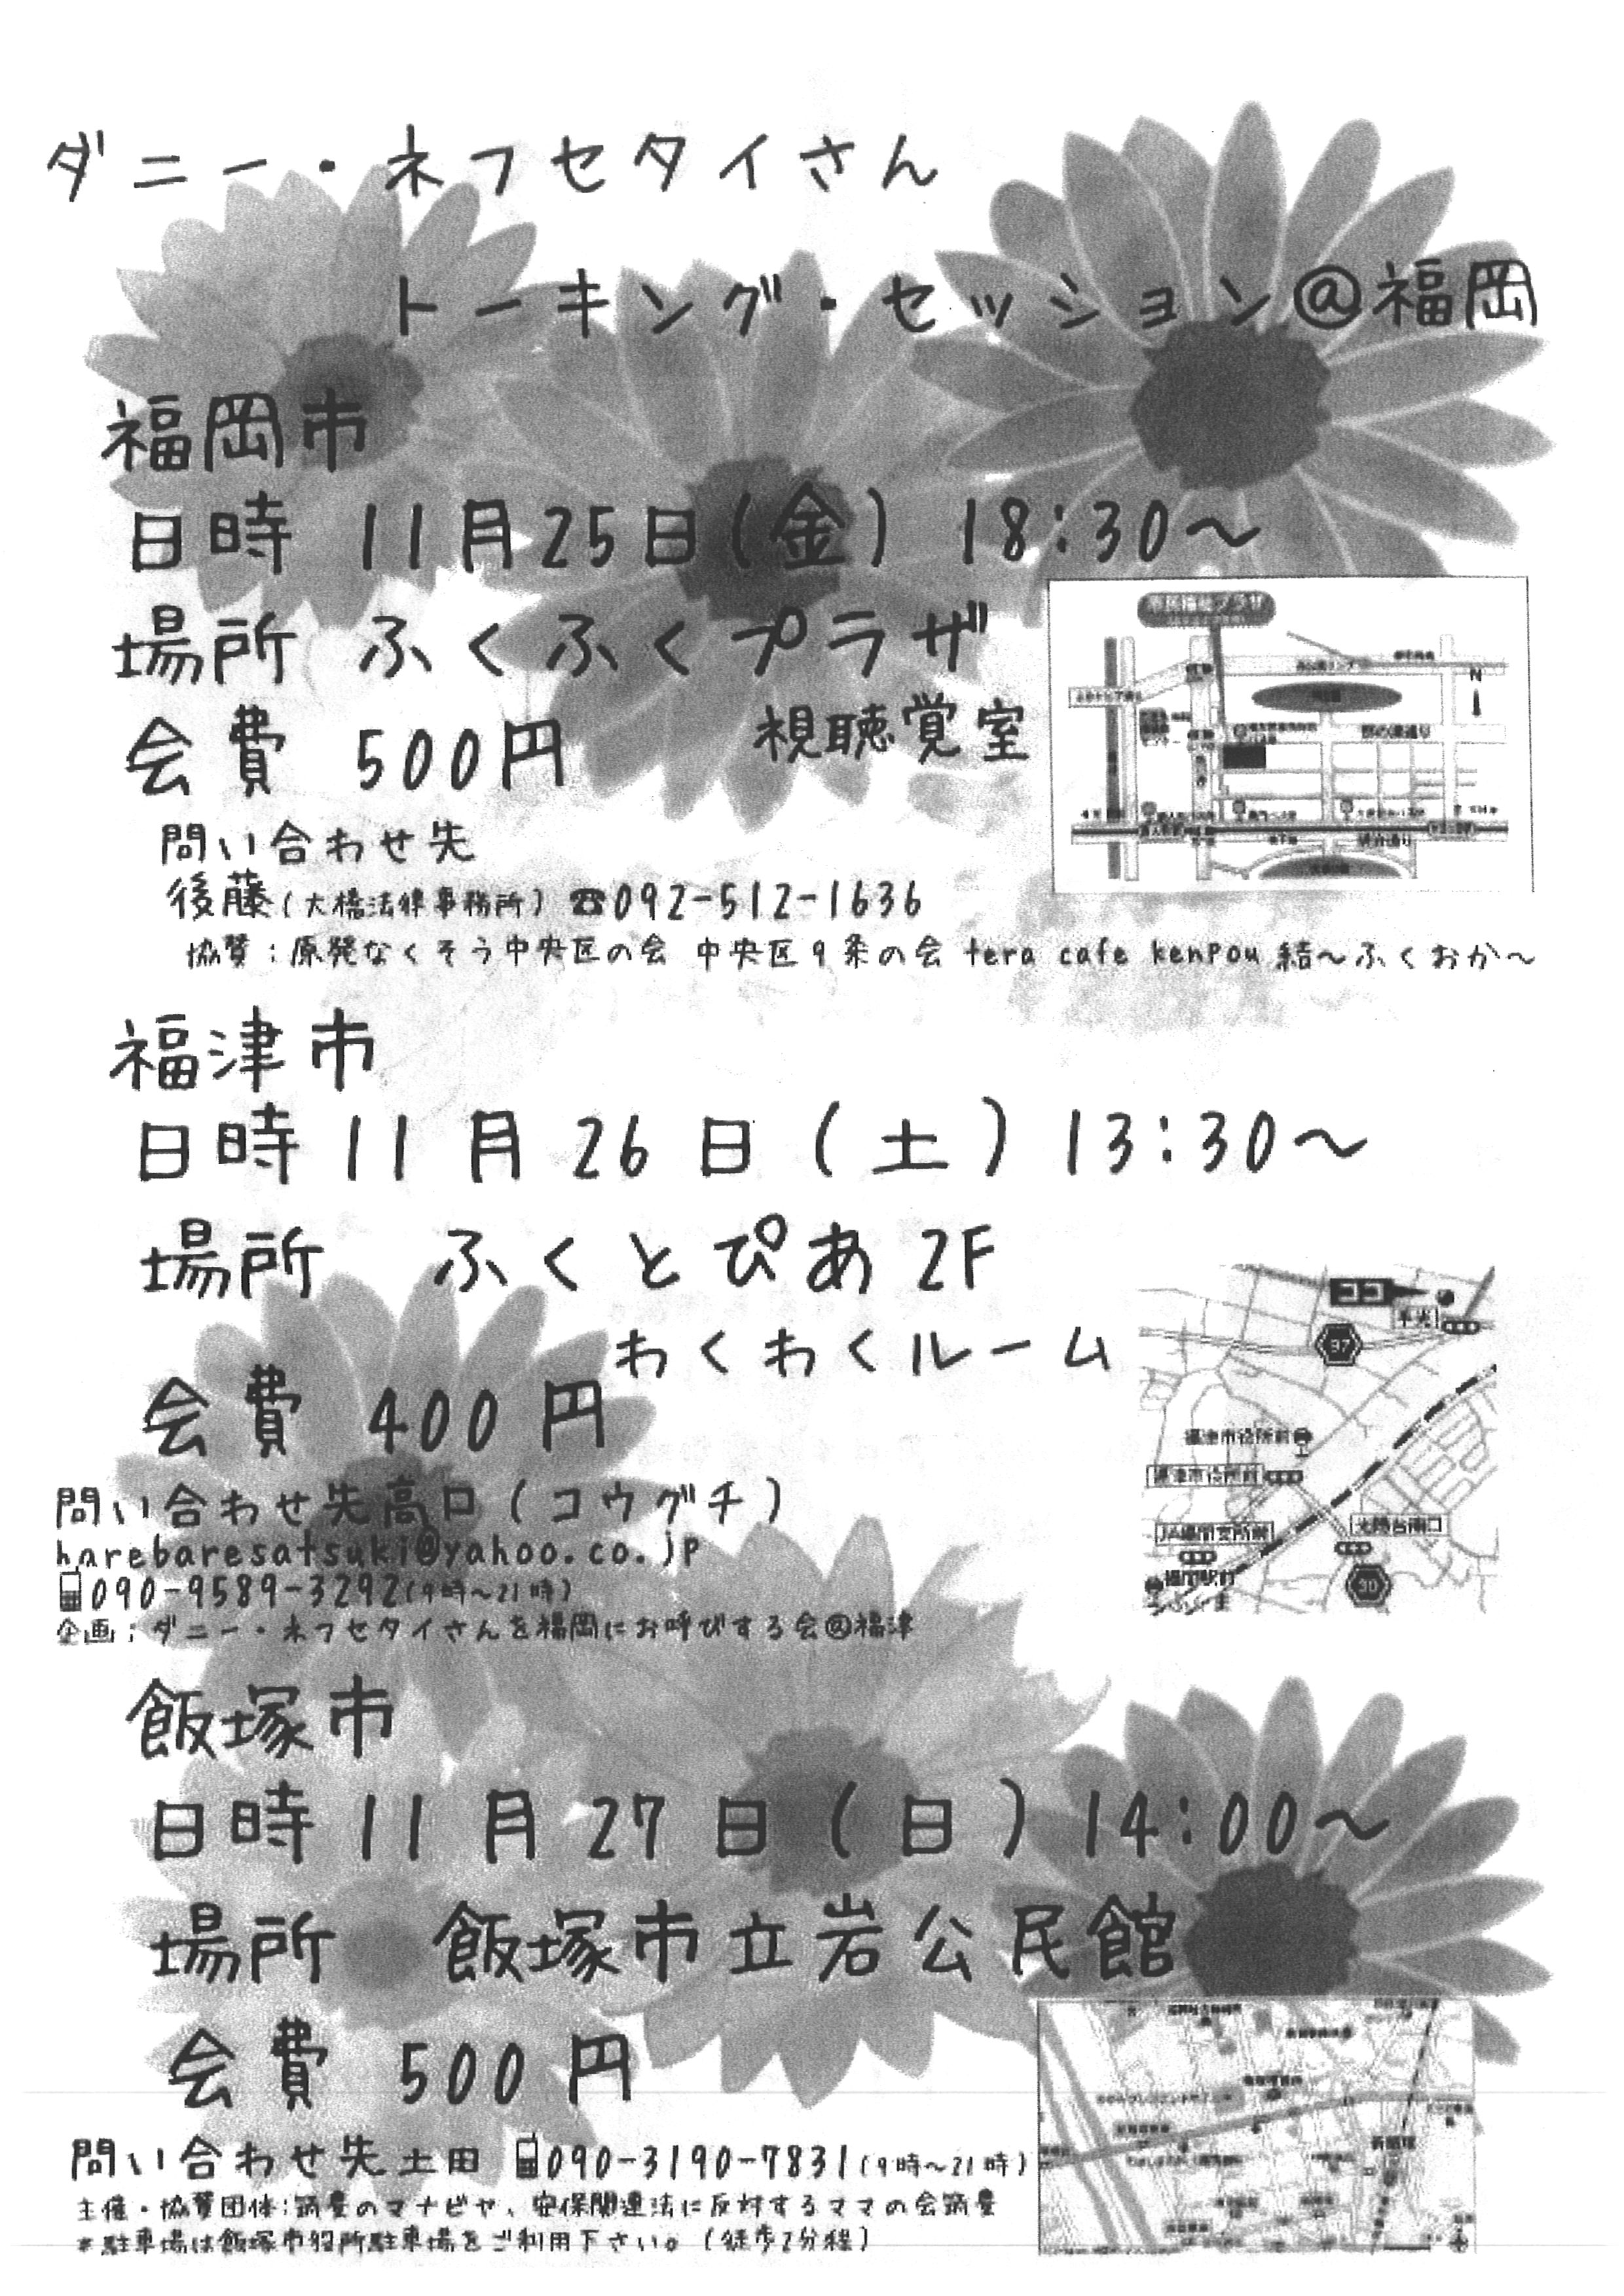 ダニー・ネフセタイさん
トーキング・セッション@福岡
福岡市
日時 11月25日(金) 18:30〜
場所 ふくふくプラザ
視聴覚室
会費 500円
問い合わせ先
後藤(大橋法律事務所) ☎092-512-1636
協賛:原発なくそう中央区の会 中央区9条の会 tera cafe kenpou 結〜ふくおか〜
福津市
日時 11月26日(土) 13:30〜
場所 ふくとぴあ 2F
わくわくルーム
会費 400円
ココ
37
福津市役所前
福津市役所前
JA福間支所前
光陽台南口
30
問い合わせ先高口(コウグチ)
harebaresatsuki@yahoo.co.jp
090-9589-3292(9時〜21時)
企画:ダニー・ネフセタイさんを福岡にお呼びする会@福津
飯塚市
日時 11月27日(日) 14:00〜
場所 飯塚市立岩公民館
会費 500円
問い合わせ先 土田 090-3190-7831(9時〜21時)
主催・協賛団体:筑豊のマナビヤ、安保関連法に反対するママの会筑豊
*駐車場は飯塚市役所駐車場をご利用下さい。(徒歩2分程)